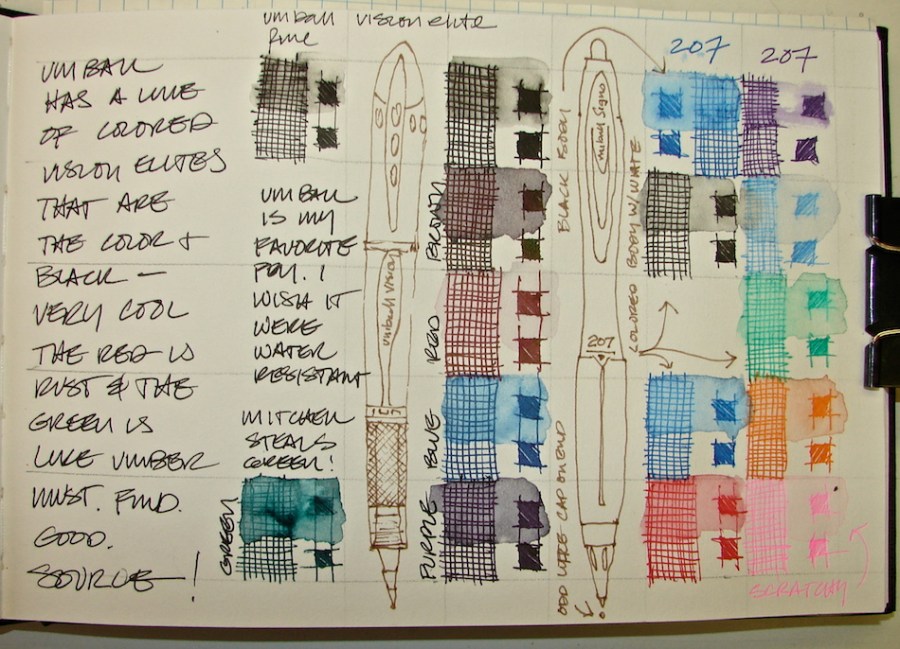 UNIBALL
HAS A LINE
OF COLORED
VISION ELITES
THAT ARE
THE COLOR &
BLACK —
VERY COOL
THE RED IS
RUST & THE
GREEN IS
LIKE UMBER
MUST. FIND.
GOOD.
SOURCE !
uniball vision elite
fine
UNIBALL
IS MY
FAVORITE
I
WISH IT
WERE
WATER
RESISTANT
MITCHELL
STEALS
GREEN!
GREEN
uniball vision
BROWN
RED
BLUE
PURPLE
BLACK BODY
uniball Signo
207
ODD WIDE CAP ON END
207
207
COLORED BODY W/WHITE
SCRATCHY